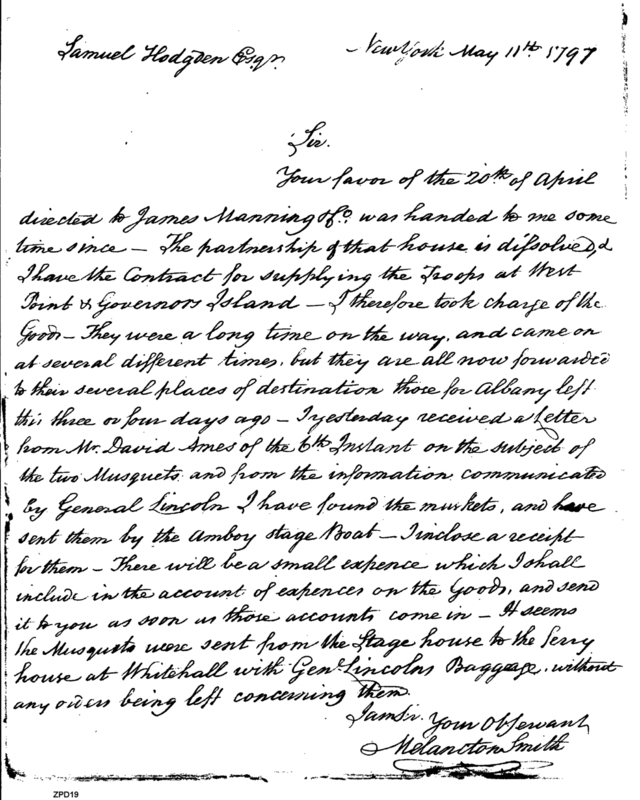 Samuel Hodgden Esqr.
New York May 11th 1797
Sir.
Your favor of the 20th of April
directed to James Manning & Co. was handed to me some
time since – The partnership of that house is dissolved, &
I have the Contract for supplying the Troops at West
Point & Governors Island – I therefore took charge of the
Goods – They were a long time on the way, and came on
at several different times, but they are all now forwarded
to their several places of destination those for Albany left
this three or four days ago – I yesterday received a Letter
from Mr. David Ames of the 6th Instant on the subject of
the two Musquets. and from the information communicated
by General Lincoln I have found the muskets, and have
sent them by the Amboy Stage Boat – I inclose a receipt
for them – There will be a small expence which I shall
include in the account of expences on the Goods, and send
it to you as soon as those accounts come in – It seems
the Musquets were sent from the Stage house to the ferry
house at Whitehall with Genl. Lincolns Baggage, without
any orders being left concerning them.
I am Sir. Your Ob Servant
Melancton Smith
ZPD19